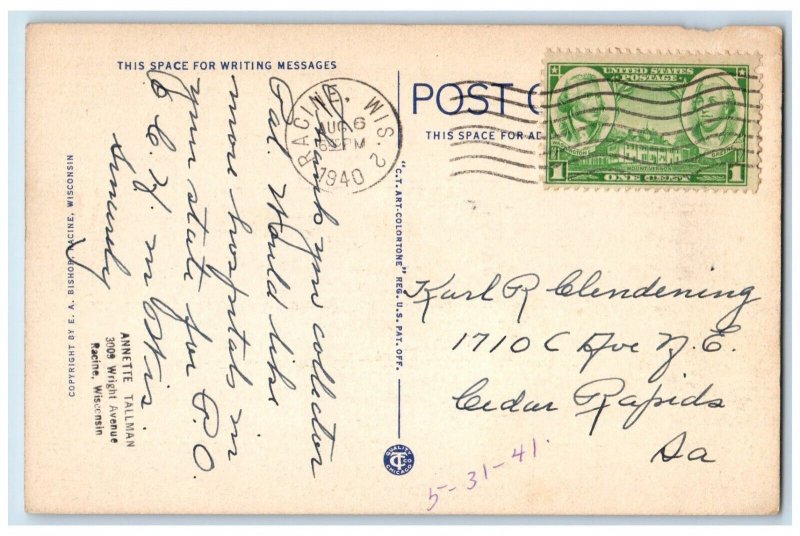 THIS SPACE FOR WRITING MESSAGES
Thank you collector
Pal. Would like
more hospitals in
your state for P.O.
in Wis.
Sincerely
ANNETTE TALLMAN
3009 Wright Avenue
Racine, Wisconsin
COPYRIGHT BY E. A. BISHOP, RACINE, WISCONSIN
RACINE, WIS. 2
AUG 6
PM
1940
"C.T. ART-COLORTONE" REG. U.S. PAT. OFF.
POST C
THIS SPACE FOR AD
UNITED STATES
POSTAGE
MOUNT VERNON
1 ONE CENT 1
Karl R Clendening
1710 C Ave N.E.
Cedar Rapids
Ia
5-31-41.
QUALITY
CT CO
CHICAGO